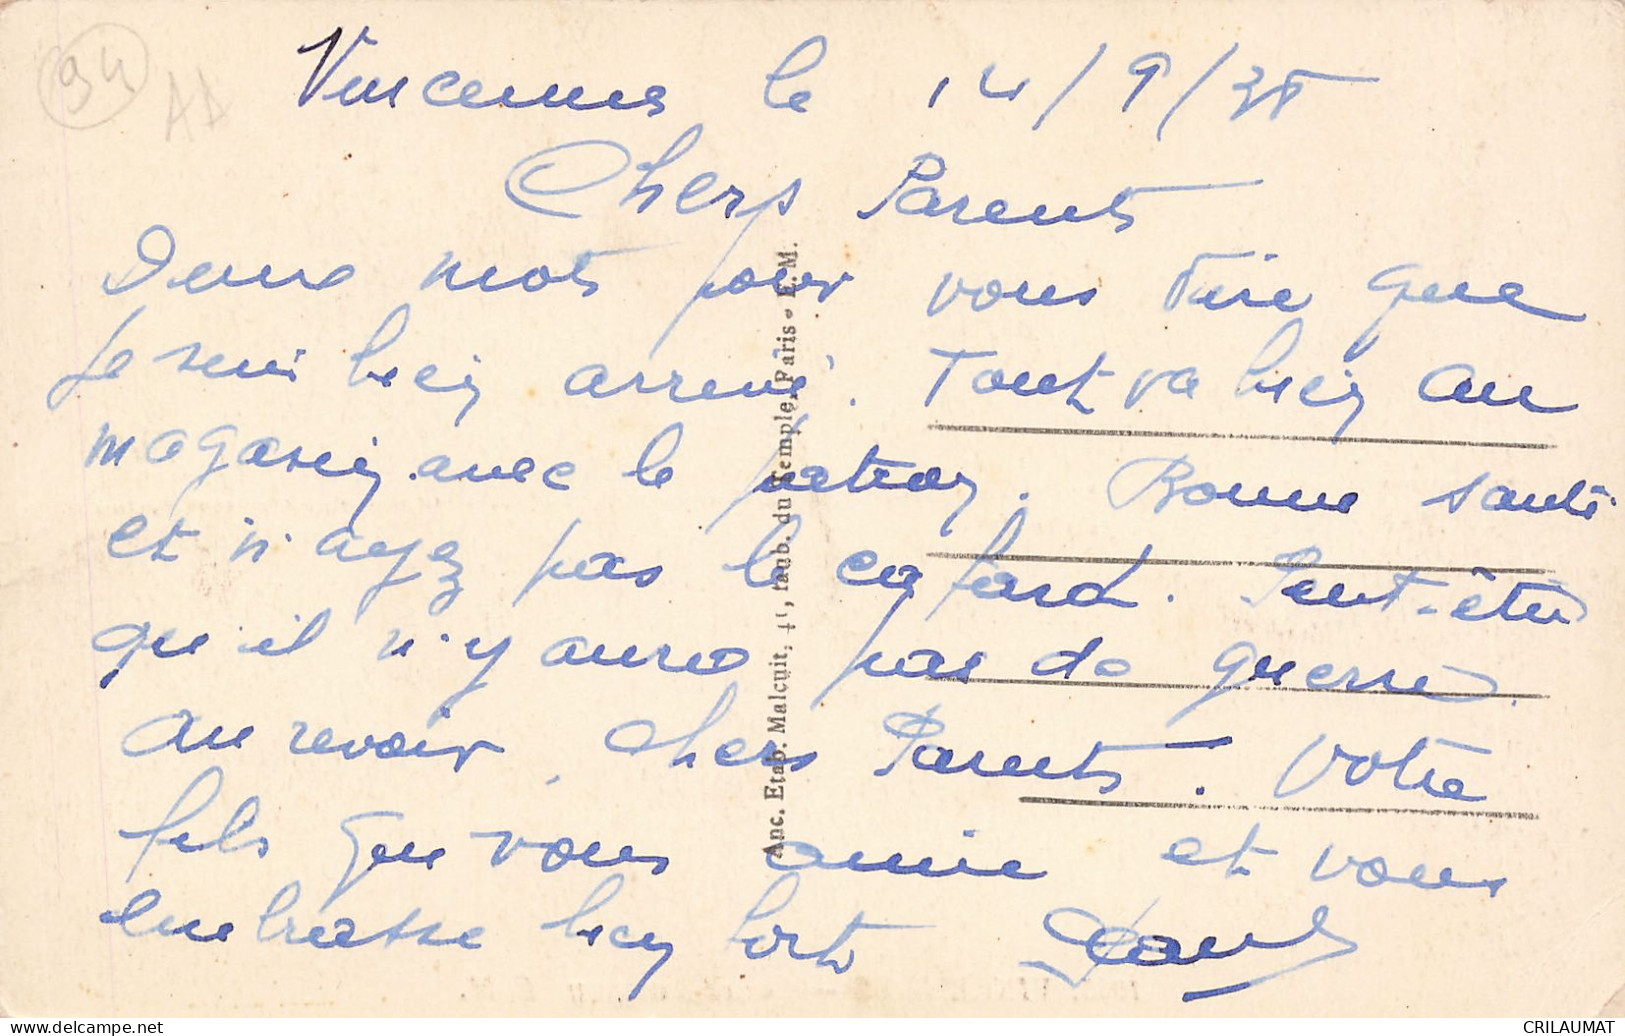 94
AD
Vincennes le 14/9/38
Chers Parents
Deux mots pour vous dire que
je suis bien arrivé. Tout va bien au
magasin avec le patron. Bonne santé
et n'ayez pas le cafard. Peut-être
qu'il n'y aura pas de guerre.
Au revoir, chers Parents. Votre
fils que vous aime et vous
embrasse bien fort
Anc. Etab. Malcuit, 41, faub. du Temple, Paris - E. M.
CRILAUMAT